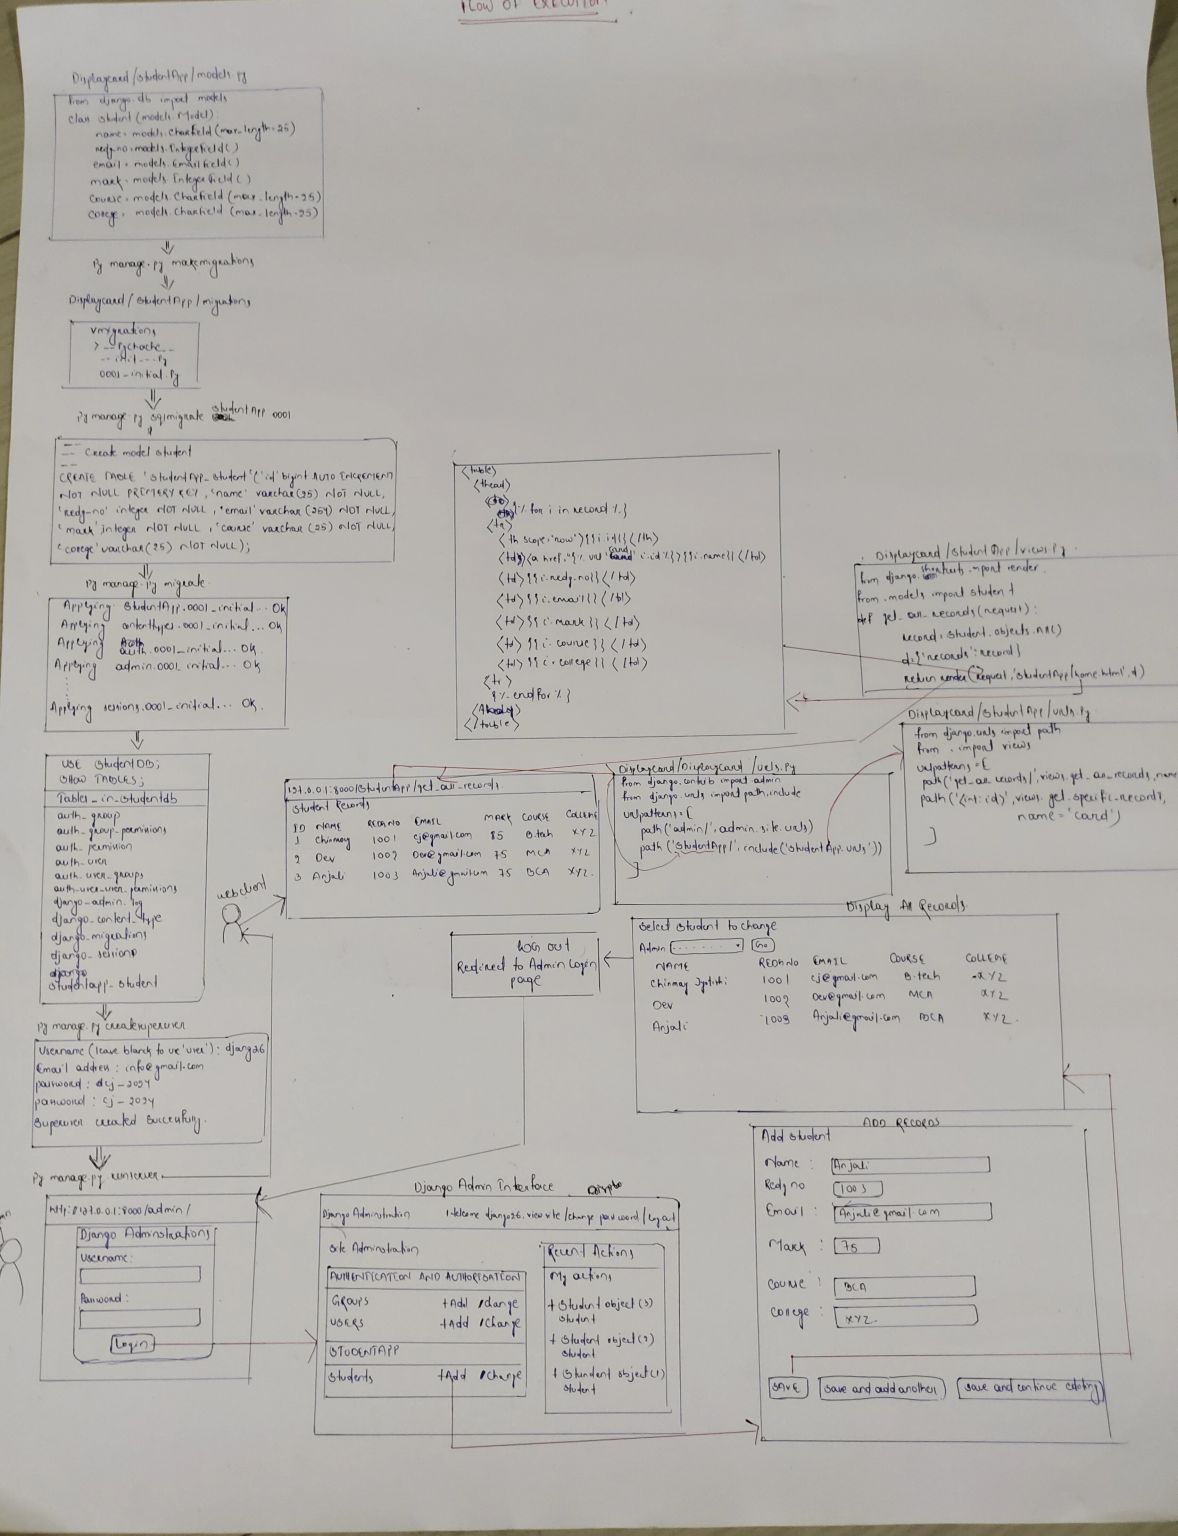 FLOW OF EXECUTION
Displaycard/StudentApp/models.py
from django.db import models
class student (models.Model):
name= models.Charfield(max_length=25)
redg.no=models.IntegerField()
email= models.Emailfield()
mark= models.Integerfield()
course= models.Charfield(max_length=25)
models.Charfield (max_length=25)
Py manage.py makemigrations
Displaycard/StudentApp/migrations
vmigrations
0001_initial.Py
Py manage.py sqlmigrate StudentApp 0001
-- Create model student
--
CREATE TABLE 'StudentApp_student' ('id' bigint AUTO INCREMENT
NOT NULL PRIMERY KEY, 'name' varchar(25) NOT NULL,
'redg-no' integer NOT NULL, 'email' varchar (254) NOT NULL,
'mark' integer NOT NULL, 'course' varchar (25) NOT NULL,
varchar(25) NOT NULL);
Py manage.py migrate
Applying StudentApp.0001_initial... OK
Applying contenttypes.0001_initial... OK
Applying auth.0001_initial... OK.
Applying admin.0001_initial... OK
Applying sessions.0001_initial... OK.
USE StudentDB;
SHOW TABLES;
Tables_in_studentdb
auth_group
auth_group-permissions
auth_permission
auth_user
auth_user_groups
auth-user-user_permissions
django-admin.log
django_content_type
django_migrations
django_sessions
django
studentapp_student
Py manage.py createsuperuser
Username (leave blanck to use 'user'): django26
Email address : info@gmail.com
password : dcj-2024
password : cj-2024
Superuser created successfully.
Py manage.py runserver
http://127.0.0.1:8000/admin/
Django Adminstrations
Username:
Password:
Login
<table>
<thead>
{% for i in record %}
<tr>
<th scope:'row'>{{i.id}}</th>
<td><a href="{% url 'card' i.id %}>{{i.name}}</td>
<td>{{i.redg.no}}</td>
<td>{{i.email}}</td>
<td>{{i.mark}}</td>
<td>{{i.course}}</td>
<td>{{i.college}}</td>
<tr>
{% endfor %}
</table>
Displaycard/StudentApp/views.Py
from django.shortcuts import render
from .models import student
def get_all_records(request):
record: Student.objects.All()
d={'records':record}
return render(request,'StudentApp/home.html',d)
Displaycard/StudentApp/urls.Py
from django.urls import path
from . import views
urlpatterns=[
path('get_all_records/',views.get_all_records,name
path('<int:id>',views.get_specific_records,
name='card')
]
Displaycard/Displaycard/urls.Py
from django.contrib import admin
from django.urls import path,include
urlpatterns=[
path('admin/',admin.site.urls)
path('StudentApp/',include('StudentApp.urls'))
]
127.0.0.1:8000/StudentApp/get_all-records
Student Records
ID NAME REDGNO EMAIL MARK COURSE COLLEGE
1 Chinmay 1001 cj@gmail.com 85 B.tech XYZ
2 Dev 1002 Dev@gmail.com 75 MCA XYZ
3 Anjali 1003 Anjali@gmail.com 75 BCA XYZ.
webclient
Display All Records
Select Student to change
Admin Go
NAME REDGNO EMAIL COURSE COLLEGE
Chinmay Jyotishi 1001 cj@gmail.com B.tech XYZ
Dev 1002 Dev@gmail.com MCA XYZ
Anjali 1003 Anjali@gmail.com BCA XYZ.
Log out
Redirect to Admin Login
page
Django Admin Interface
Django Adminstration Welcome django26.view site/change password/logout
Site Adminstration
AUTHENTICATION AND AUTHORISATION
GROUPS +Add /Change
USERS +Add /Change
STUDENTAPP
Students +Add /Change
Recent Actions
My actions
+ Student object(3)
student
+ Student object(2)
student
+ Stundent object(1)
student
ADD RECORDS
Add student
Name : Anjali
Redg no 1003
Email : Anjali@gmail.com
Mark : 75
course : BCA
college : XYZ.
SAVE save and add another save and continue editing